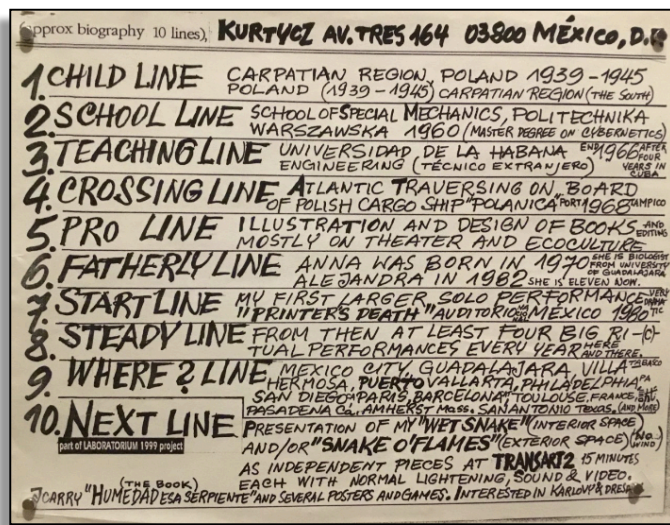 (approx biography 10 lines), KURTYCZ AV. TRES 164 03800 MÉXICO, D.F.
1. CHILD LINE CARPATIAN REGION, POLAND 1939-1945
POLAND (1939-1945) CARPATIAN REGION (THE SOUTH)
2. SCHOOL LINE SCHOOL OF SPECIAL MECHANICS, POLITECHNIKA
WARSZAWSKA 1960 (MASTER DEGREE ON CYBERNETICS)
3. TEACHING LINE UNIVERSIDAD DE LA HABANA END 1966 AFTER FOUR YEARS IN CUBA
ENGINEERING (TÉCNICO EXTRANJERO)
4. CROSSING LINE ATLANTIC TRAVERSING ON BOARD
OF POLISH CARGO SHIP "POLANICA" PORT 1968 TAMPICO
5. PRO LINE ILLUSTRATION AND DESIGN OF BOOKS AND EDITING
MOSTLY ON THEATER AND ECOCULTURE
6. FATHERLY LINE ANNA WAS BORN IN 1970 SHE IS BIOLOGIST FROM UNIVERSITY OF GUADALAJARA
ALEJANDRA IN 1982 SHE IS ELEVEN NOW.
7. START LINE MY FIRST LARGER, SOLO PERFORMANCE VERY DRAMATIC
"PRINTER'S DEATH" AUDITORIO MÉXICO 1980
8. STEADY LINE FROM THEN AT LEAST FOUR BIG RI-(C)-
TUAL PERFORMANCES EVERY YEAR HERE AND THERE.
9. WHERE? LINE MEXICO CITY, GUADALAJARA, VILLA TABASCO
HERMOSA, PUERTO VALLARTA, PHILADELPHIA PA
SAN DIEGO PARIS, BARCELONA TOULOUSE, FRANCE,
PASADENA Ca, AMHERST Mass. SAN ANTONIO TEXAS. (AND MORE)
10. NEXT LINE PRESENTATION OF MY "WET SNAKE" (INTERIOR SPACE)
part of LABORATORIUM 1999 project
AND/OR "SNAKE O'FLAMES" (EXTERIOR SPACE) (NO WIND)
AS INDEPENDENT PIECES AT TRANSART2 15 MINUTES
EACH WITH NORMAL LIGHTENING, SOUND & VIDEO.
I CARRY (THE BOOK) "HUMEDAD ESA SERPIENTE" AND SEVERAL POSTERS AND GAMES. INTERESTED IN KARLOVY &